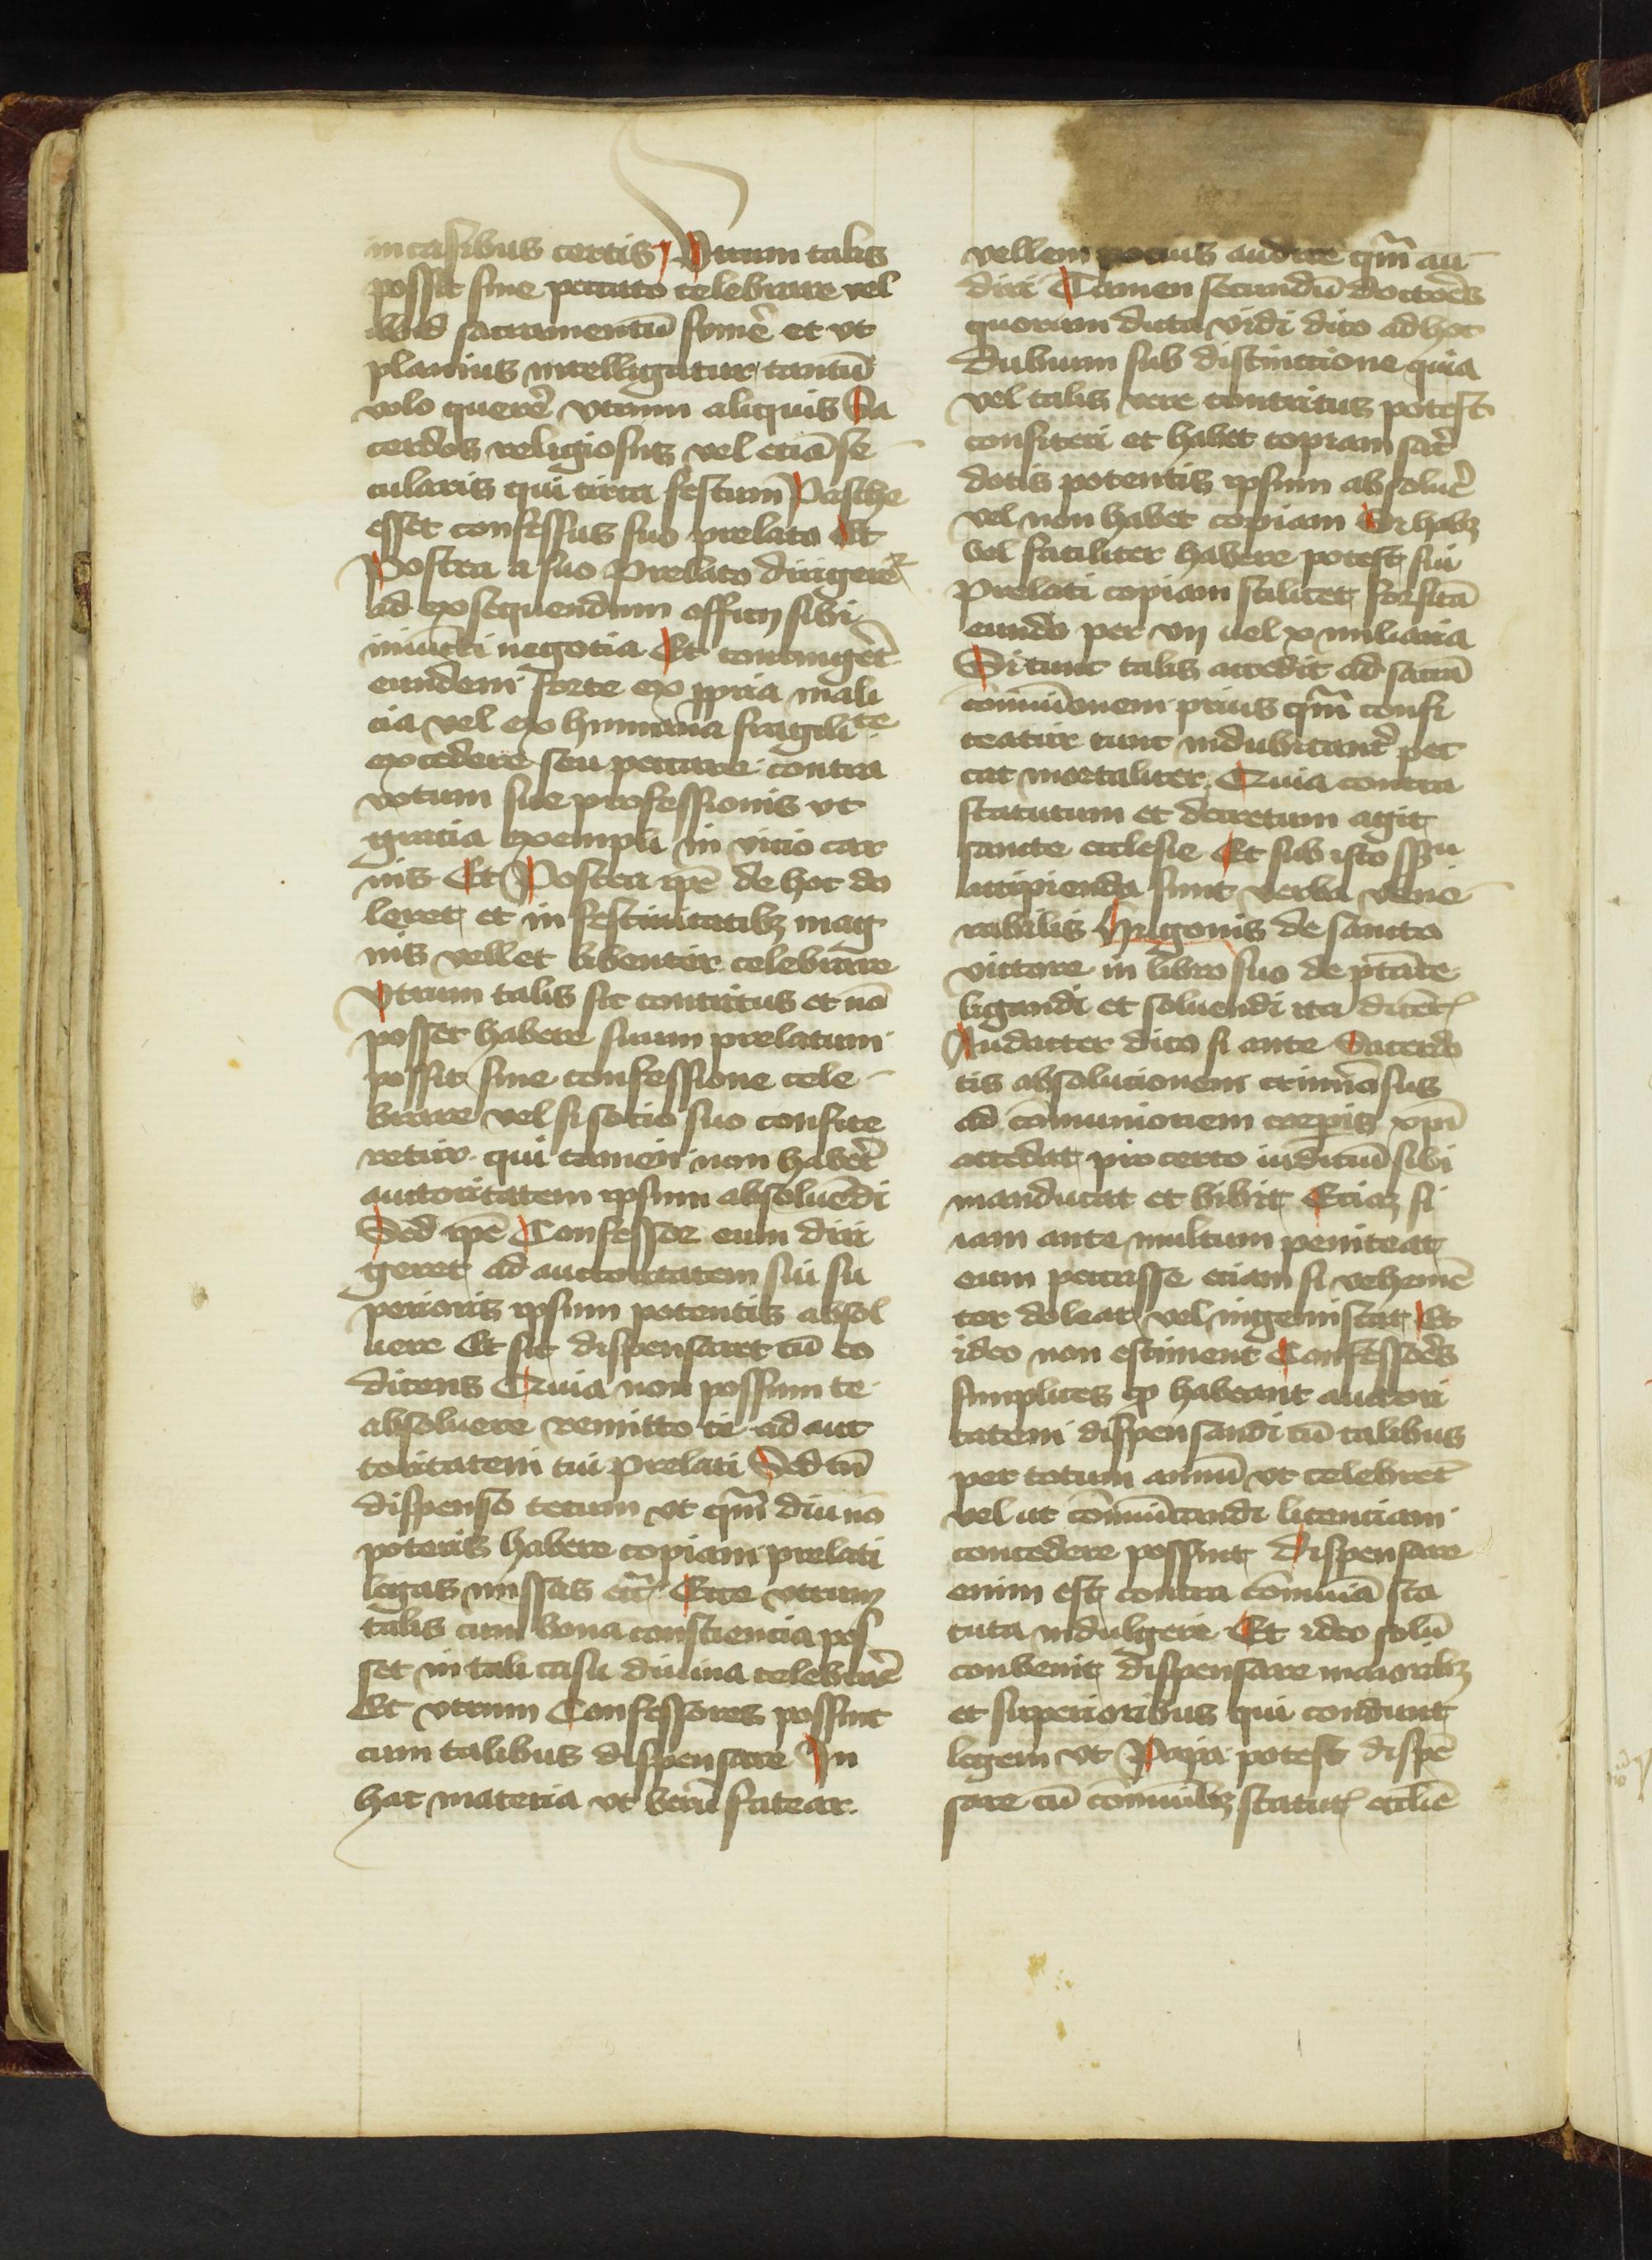 in casibus certis Vtrum talis
possit sine peccato celebrare vel
illud sacramentū sumē et vt
planius intelligatur tantū
volo querē vtrum aliquis Sa
cerdos religiosus vel eciā se
cularis qui circa festum Pasche
esset confessus suo prelato Et
Postea a suo Prelato dirigeret
ad exsequendum officij sibi
iniūcti negotia Et contingēt
eundem forte ex ꝓpria mali
cia vel ex humana fragilite
excedere seu peccare contra
votum sue professionis vt
gracia exempli in vicio car
nis Et Postea ipē de hoc do
leret et in festiuitatibꝫ mag
nis vellet libenter celebrare
Vtrum talis sic contritus et nō
posset habere suum prelatum
possit sine confessione cele
brare vel si socio suo confite
retur qui tamen non habēt
autoritatem ipsum absoluēdi
Sed ipē Confessor eum diri
geret ad auctoritatem sui su
perioris ipsum potentis absol
uere Et sic dispensaret cū eo
dicens Quia non possum te
absoluere remitto te ad auc
toritatem tui prelati Sed tn̄
dispenso tecum vt qm̄ diu nō
poteris habere copiam prelati
legas missas etc̄ Ecce vtrum
talis cum bona consciencia pos
set in tali casu diuina celebrarē
Et vtrum Confessores possint
cum talibus dispensare In
hac materia vt verū fatear
vellem pocius audire qm̄ au
diri Tamen secundū doctoēs
quorum dicta vidi dico ad hoc
dubium sub distinctione quia
vel talis vere contritus potest
confiteri et habet copiam sacē
dotis potentis ipsum absoluē
vel non habet copiam Si habꝫ
vel faciliter habere potest sui
Prelati copiam scilicet forsitā
eundo per vij uel x miliaria
Si tunc talis accedit ad sacrā
cōmūionem prius qm̄ confi
teatur tunc indubitanē pec
cat mortaliter Quia contra
statutum et decretum agit
sancte ecclesie Et sub isto
accipienda sunt verba vene
rabilis Hugonis de sancto
victore in libro suo de ptāte
ligandi et soluendi ita dicēt
Audacter dico si ante Sacerdo
tis absolucionem criminosus
ad cōmunionem corpis xpī
accedat pro certo iudiciū sibi
manducat et bibit Eciaꝫ si
iam ante multum peniteat
eum peccasse eciam si vehemē
ter doleat vel ingemiscat Et
ideo non estiment Confessoēs
simplices ꝙ habeant auctori
tatem dispensandi cū talibus
per totum annū vt celebrēt
vel ut cōmūicandi licenciam
concedere possint Dispensare
enim est contra cōmunā sta
tuta indulgere Et ideo solū
conuenit dispensare maioribꝫ
et superioribus qui condunt
legem vt Papa potest dispē
sare cū cōmunibꝫ statut ecclīe